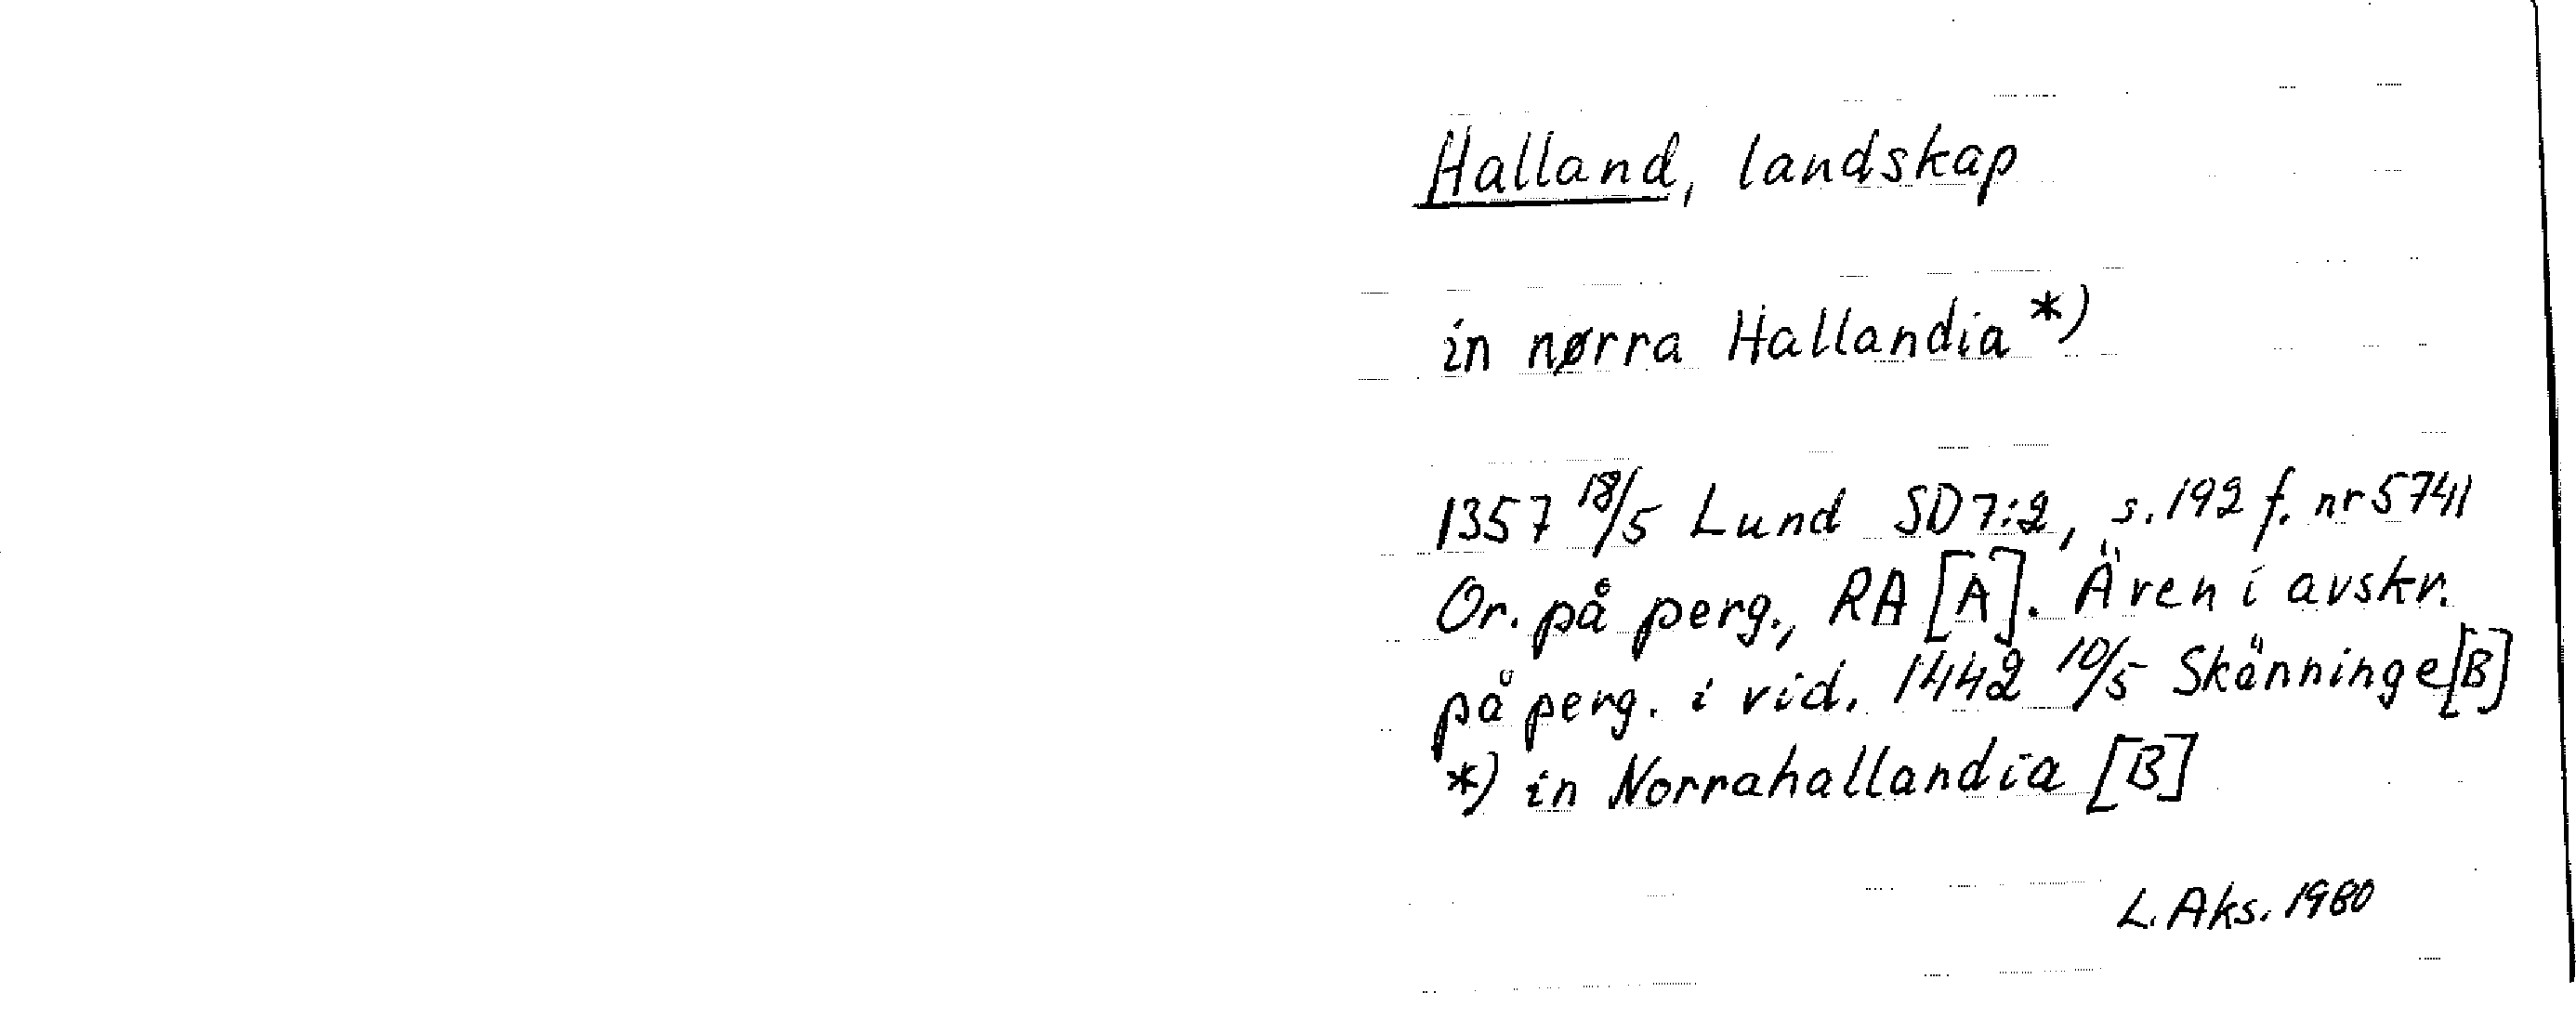 Halland, landskap
in nørra Hallandia *)
1357 18/5 Lund SD 7:2, s. 192 f. nr 5741
Or. på perg., RA [A]. Även i avskr.
på perg. i vid. 1442 10/5 Skänninge [B]
*) in Norrahallandia [B]
L. Aks. 1980